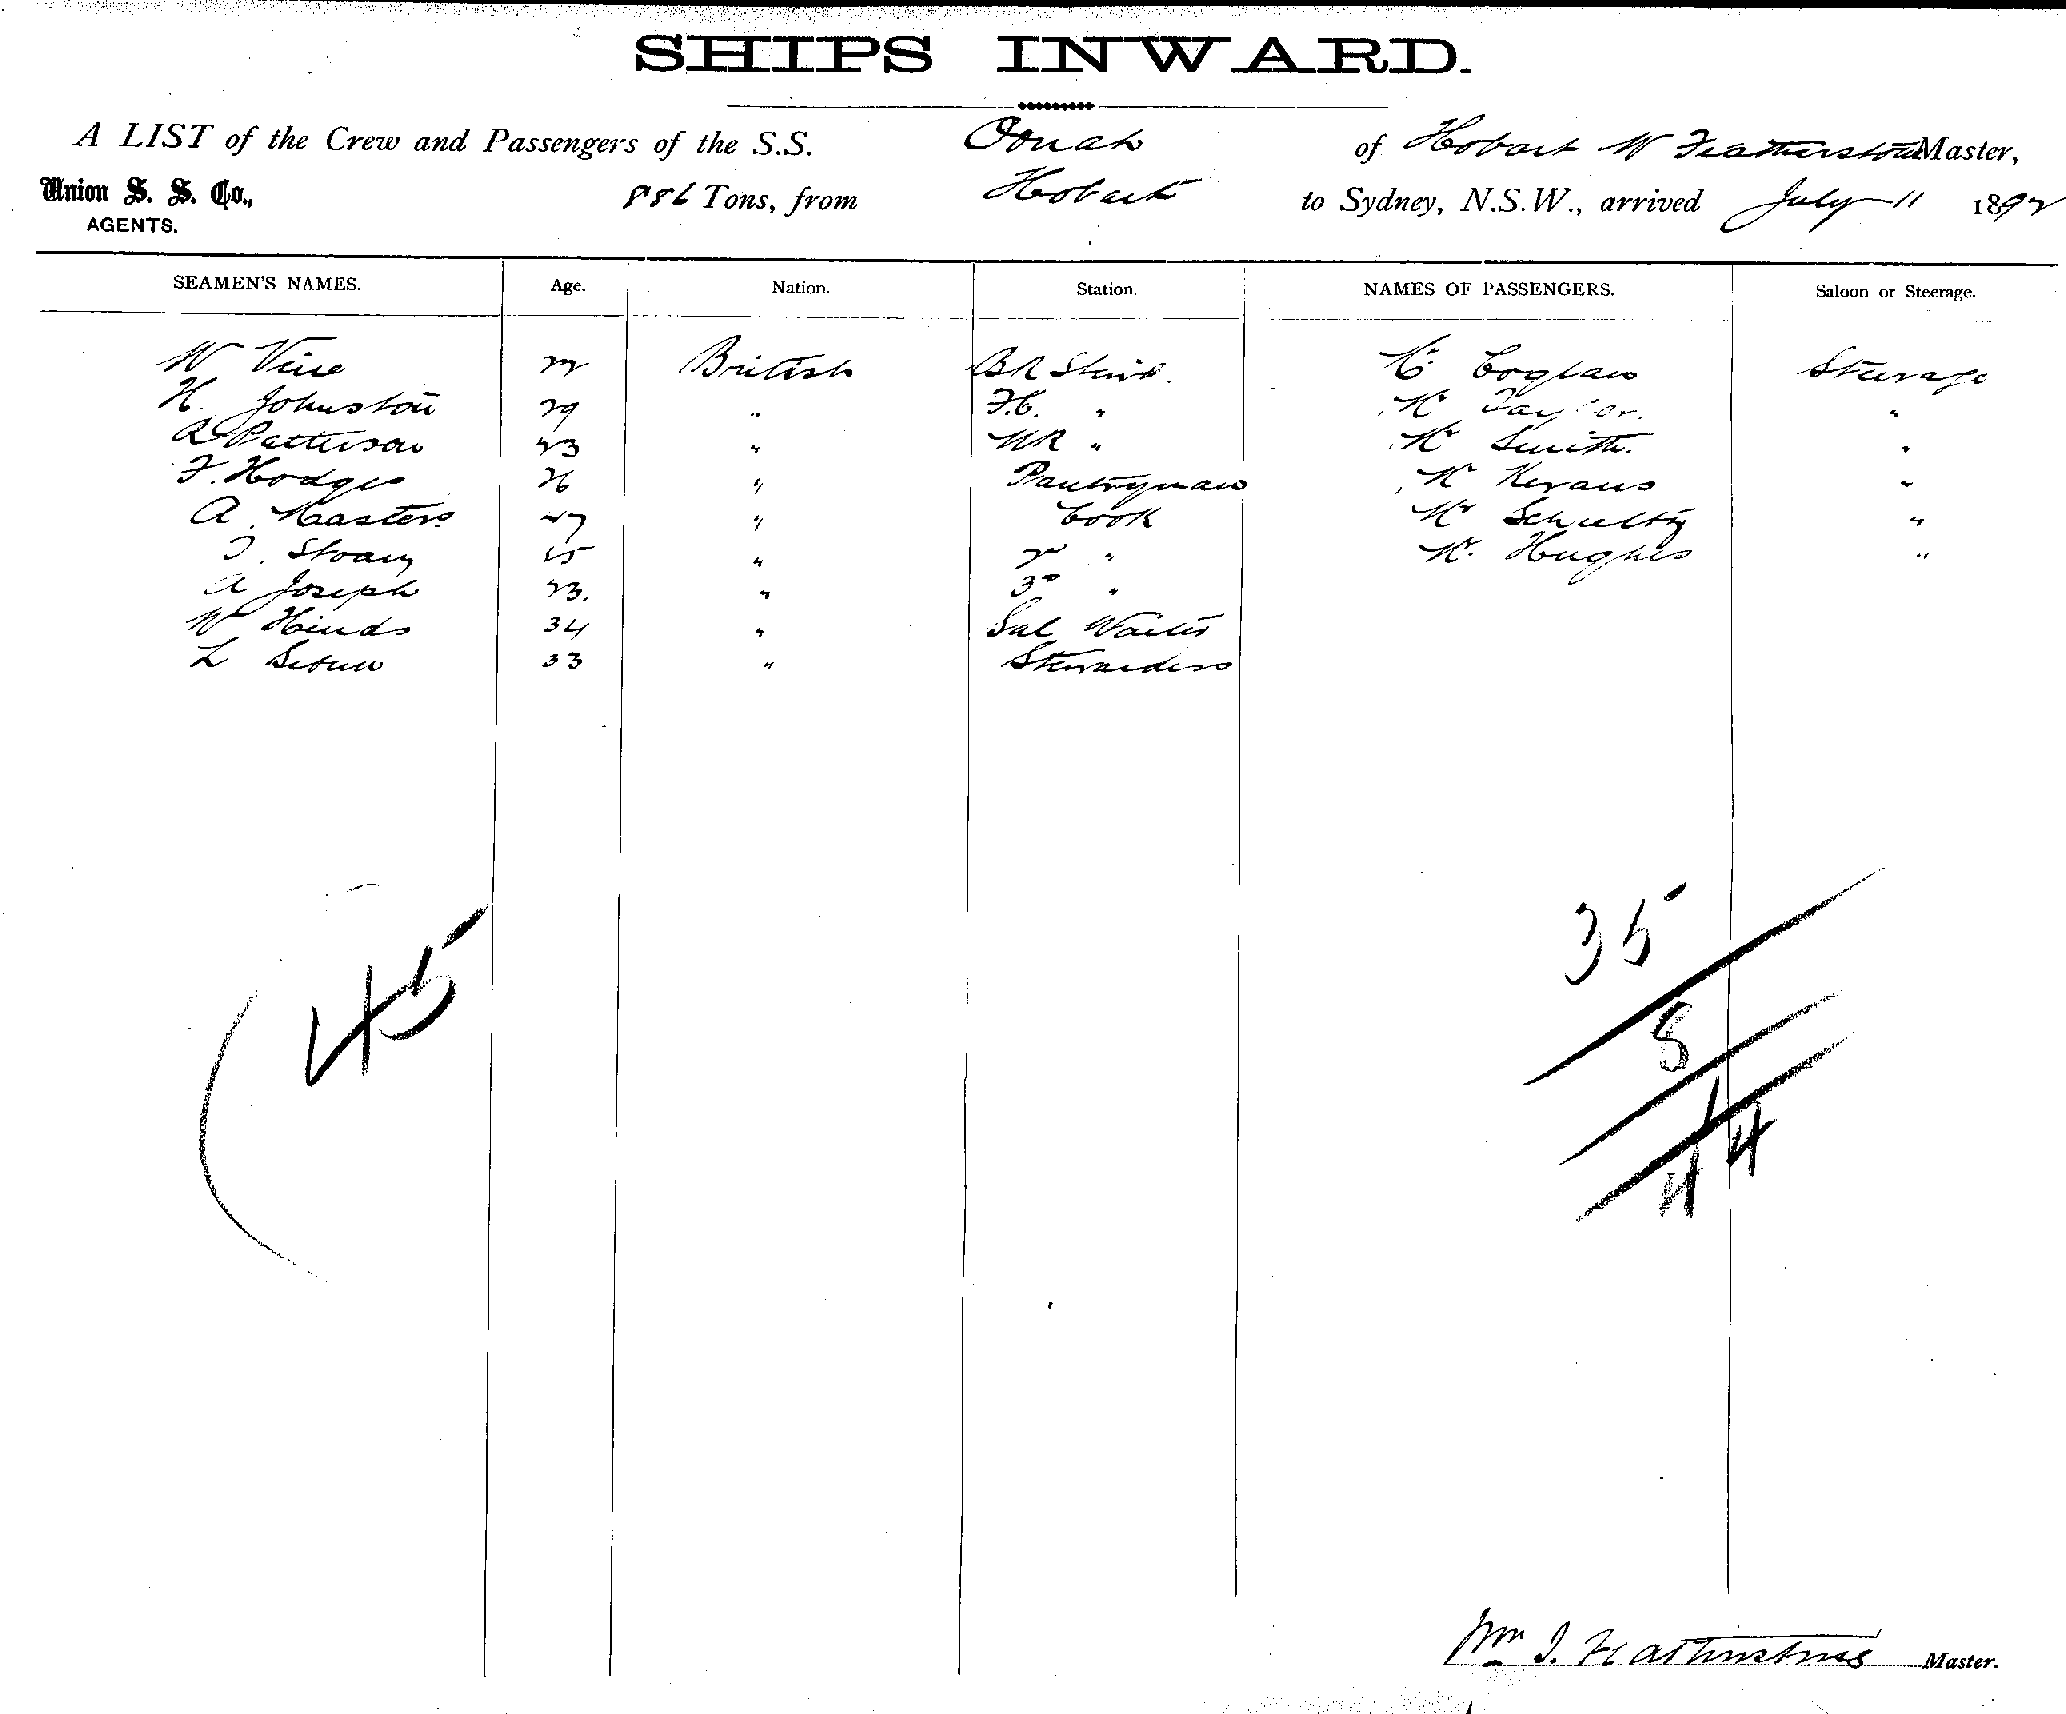 SHIPS INWARD.
A LIST of the Crew and Passengers of the S.S. Oonah of Hobart W Featherstone Master,
Union S. S. Co., 886 Tons, from Hobart to Sydney, N.S.W., arrived July 11 1892
AGENTS.
SEAMEN'S NAMES. Age. Nation. Station. NAMES OF PASSENGERS. Saloon or Steerage.
W Vine 22 British BR Stwd. Mr Coglan Steerage
H. Johnston 29 " F.C. " Mr Taylor. "
A Patterson 23 " MR " Mr Smith. "
F. Hodges 26 " Pantryman Mr Kerans "
A. Masters 27 " Cook Mr Schultz "
Sloan " 2nd " Mr. Hughes "
A Joseph 23. " 3rd "
W Hinds 34 " Sal Waiter
L 33 " Stewardess
45
35
8
1
44
Wm J. Featherstone Master.